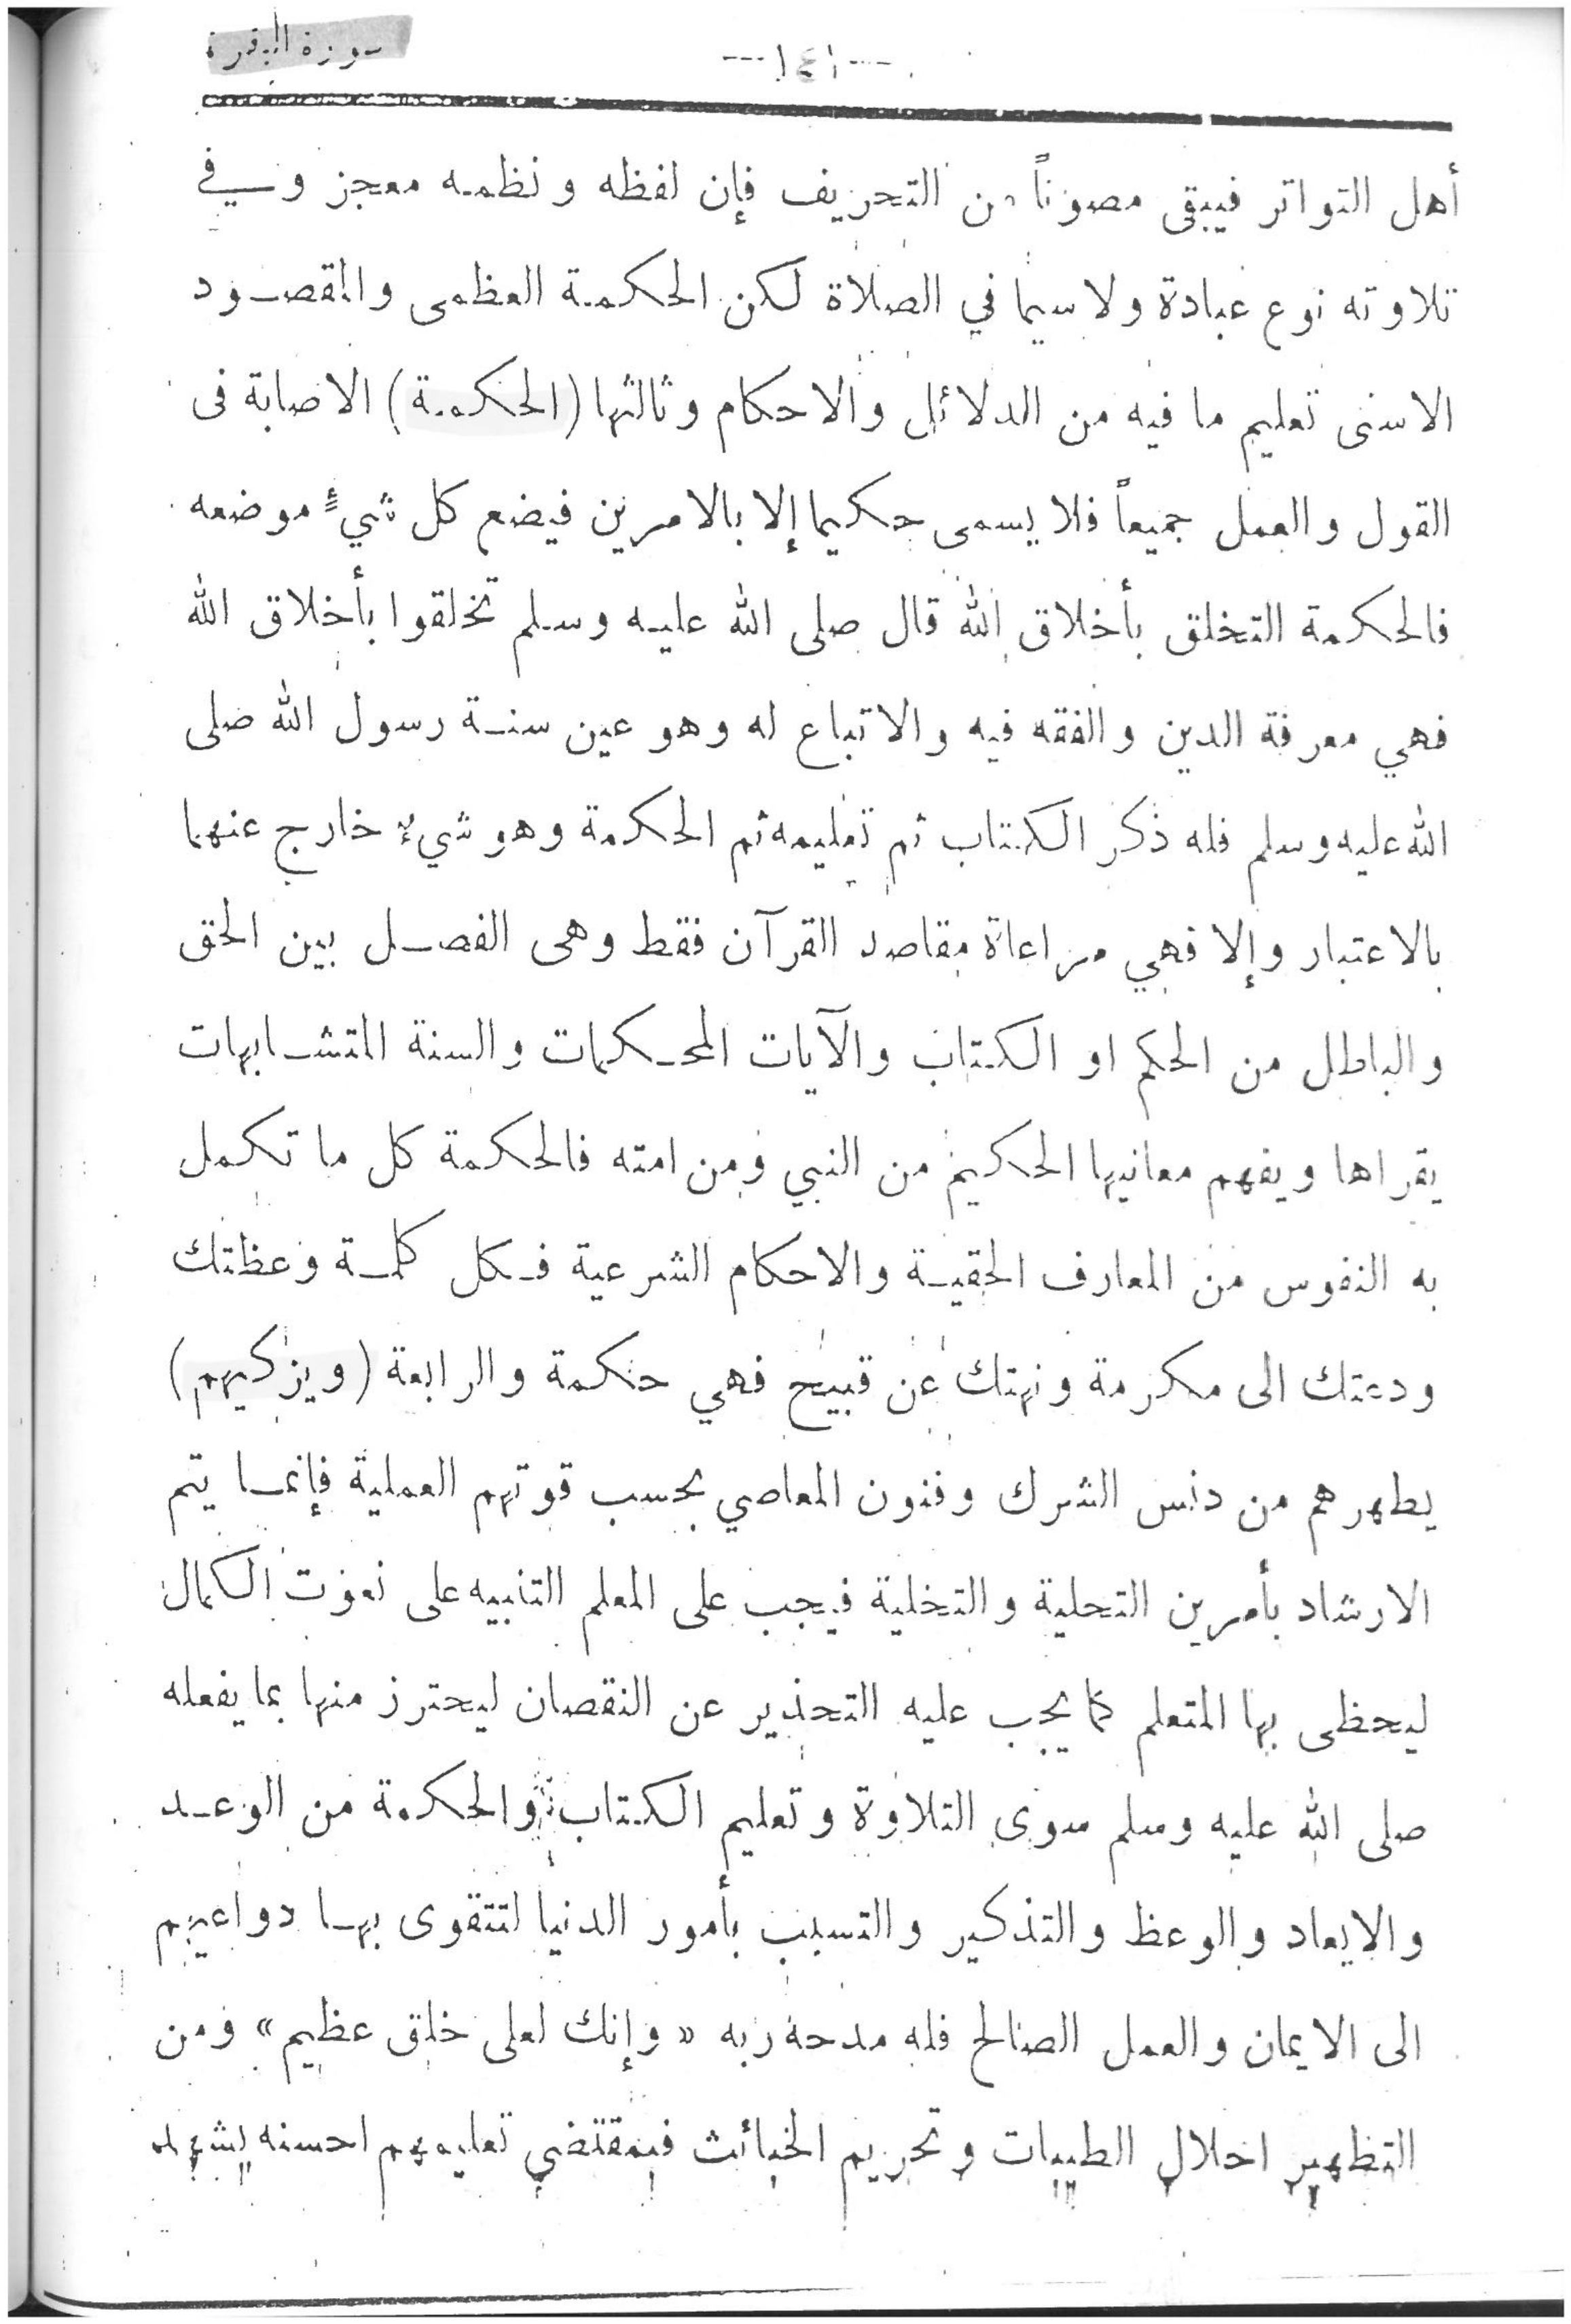 سورة البقرة
--- ١٤١ ---
أهل التواتر فيبقى مصوناً من التحريف فإن لفظه ونظمه معجز وسفي
تلاوته نوع عبادة ولا سيما في الصلاة لكن الحكمة العظمى والمقصود
الاسنى تعليم ما فيه من الدلائل والاحكام وثالثها (الحكمة) الاصابة فى
القول والعمل جميعاً فلا يسمى حكيما إلا بالامرين فيضع كل شيءٍ موضعه
فالحكمة التخلق بأخلاق الله قال صلى الله عليه وسلم تخلقوا بأخلاق الله
فهي معرفة الدين والفقه فيه والاتباع له وهو عين سنة رسول الله صلى
الله عليه وسلم فله ذكر الكتاب ثم تعليمه ثم الحكمة وهو شيء خارج عنهما
بالاعتبار وإلا فهي مراعاة مقاصد القرآن فقط وهى الفصل بين الحق
والباطل من الحكم او الكتاب والآيات المحكمات والسنة المتشابهات
يقراها ويفهم معانيها الحكيم من النبي ومن امته فالحكمة كل ما تكمل
به النفوس من المعارف الحقية والاحكام الشرعية فكل كلمة وعظتك
ودعتك الى مكرمة ونهتك عن قبيح فهي حكمة والرابعة (ويزكيهم)
يطهرهم من دنس الشرك وفنون المعاصي بحسب قوتهم العملية فإنما يتم
الارشاد بأمرين التحلية والتخلية فيجب على المعلم التنبيه على نعوت الكمال
ليحظى بها المتعلم كما يجب عليه التحذير عن النقصان ليحترز منها بما يفعله
صلى الله عليه وسلم سوى التلاوة وتعليم الكتاب والحكمة من الوعد
والايعاد والوعظ والتذكير والتسبب بأمور الدنيا لتتقوى بها دواعيهم
الى الايمان والعمل الصالح فله مدحه ربه «وإنك لعلى خلق عظيم» ومن
التطهير احلال الطيبات وتحريم الخبائث فبمقتضي تعليمهم احسنه يشهد